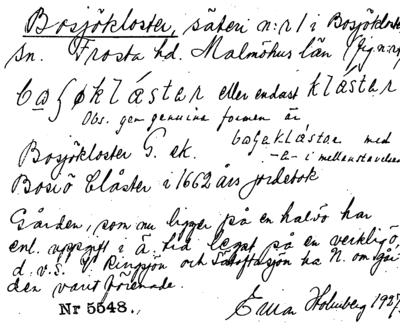 Bosjökloster, säteri n:r 1 i Bosjökloster
sn. Frosta hd. Malmöhus län
eller endast
Obs. gen genuina formen är
med
Bosjökloster G. ek. -e- i mellanstavelsen
Bosiö Clåster i 1662 års jordebok
Gården, som nu ligger på en halvö har
enl. uppgift i ä. tid legat på en verklig ö,
d. v. s. V. Ringsjön och Sätoftasjön ha N. om gården
varit förenade.
Nr 5548.
Holmberg 1927